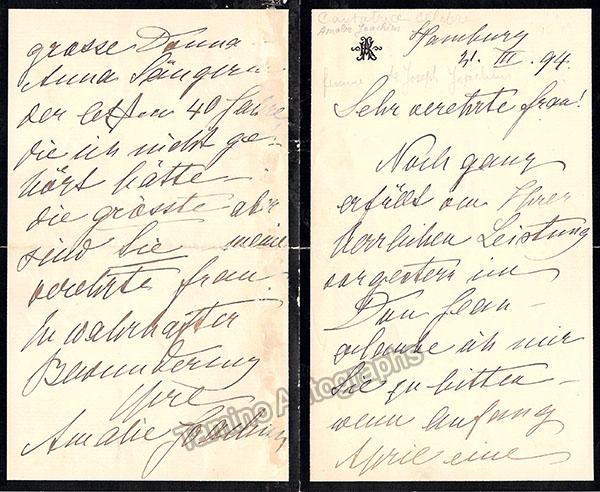 Cantatrice célèbre
Amalie Joachim
femme de Joseph Joachim
Hamburg
31. III. 94.
Sehr verehrte Frau!
Noch ganz
erfüllt von Ihrer
herrlichen Leistung
vorgestern im
Don Juan –
erlaube ich mir
Sie zu bitten –
wenn Anfang
April eine
grosse Donna
Anna Sängerin
der letzten 40 Jahre
die ich nicht ge-
hört hätte –
die grösste aber
sind Sie meine
verehrte Frau.
In wahrhafter
Bewunderung
Ihre
Amalie Joachim
Tamino Autographs